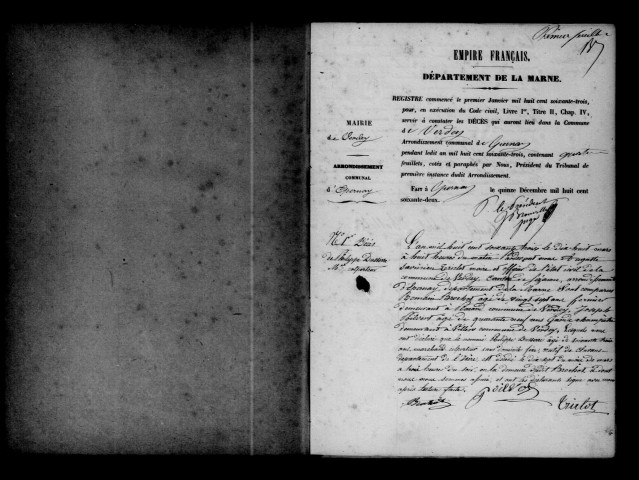 Premier feuillet
EMPIRE FRANÇAIS.
DÉPARTEMENT DE LA MARNE.
REGISTRE commencé le premier Janvier mil huit cent soixante-trois,
pour, en exécution du Code civil, Livre Ier, Titre II, Chap. IV,
servir à constater les DÉCÈS qui auront lieu dans la Commune
d e Verdey
Arrondissement communal d'Epernay
pendant ledit an mil huit cent soixante-trois, contenant quatre
feuillets, cotés et paraphés par Nous, Président du Tribunal de
première instance dudit Arrondissement.
FAIT à Epernay le quinze Décembre mil huit cent
soixante-deux.
P. le Président
juge
MAIRIE
de Verdey
ARRONDISSEMENT
COMMUNAL
d'Epernay
No 1er Décès
de Philippe
Md
L'an mil huit cent soixante trois le dix huit mars
à huit heures du matin Pardevant nous Auguste
maire et officier de l'état civil de la
commune de Verdey, Canton de Sézanne, arrondissement
d'Epernay, département de la Marne sont comparus
Brochot âgé de vingt sept ans fermier
demeurant à commune de Verdey, Joseph
âgé de quarante neuf ans Garde
demeurant à commune de Verdey, lesquels nous
ont déclaré que le nommé Philippe âgé de soixante trois
ans, marchand sans domicile fixe, natif de
département de l'Isère est décédé le dix sept du mois de mars
à trois heures du soir, en la demeure dudit Brochot
nous nous sommes assuré, et ont les déclarants signé avec nous
après lecture faite.